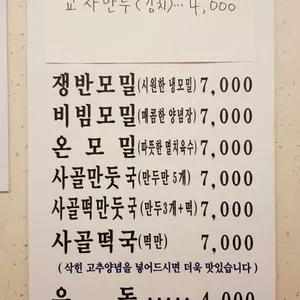 교자만두(김치)...4,000
쟁반모밀(시원한 냉모밀) 7,000
비빔모밀(매콤한 양념장) 7,000
온모밀(따뜻한 멸치육수) 7,000
사골만둣국(만두만 5개) 7,000
사골떡만둣국(만두3개+떡) 7,000
사골떡국(떡만) 7,000
(삭힌 고추양념을 넣어드시면 더욱 맛있습니다)
우동.....4,000